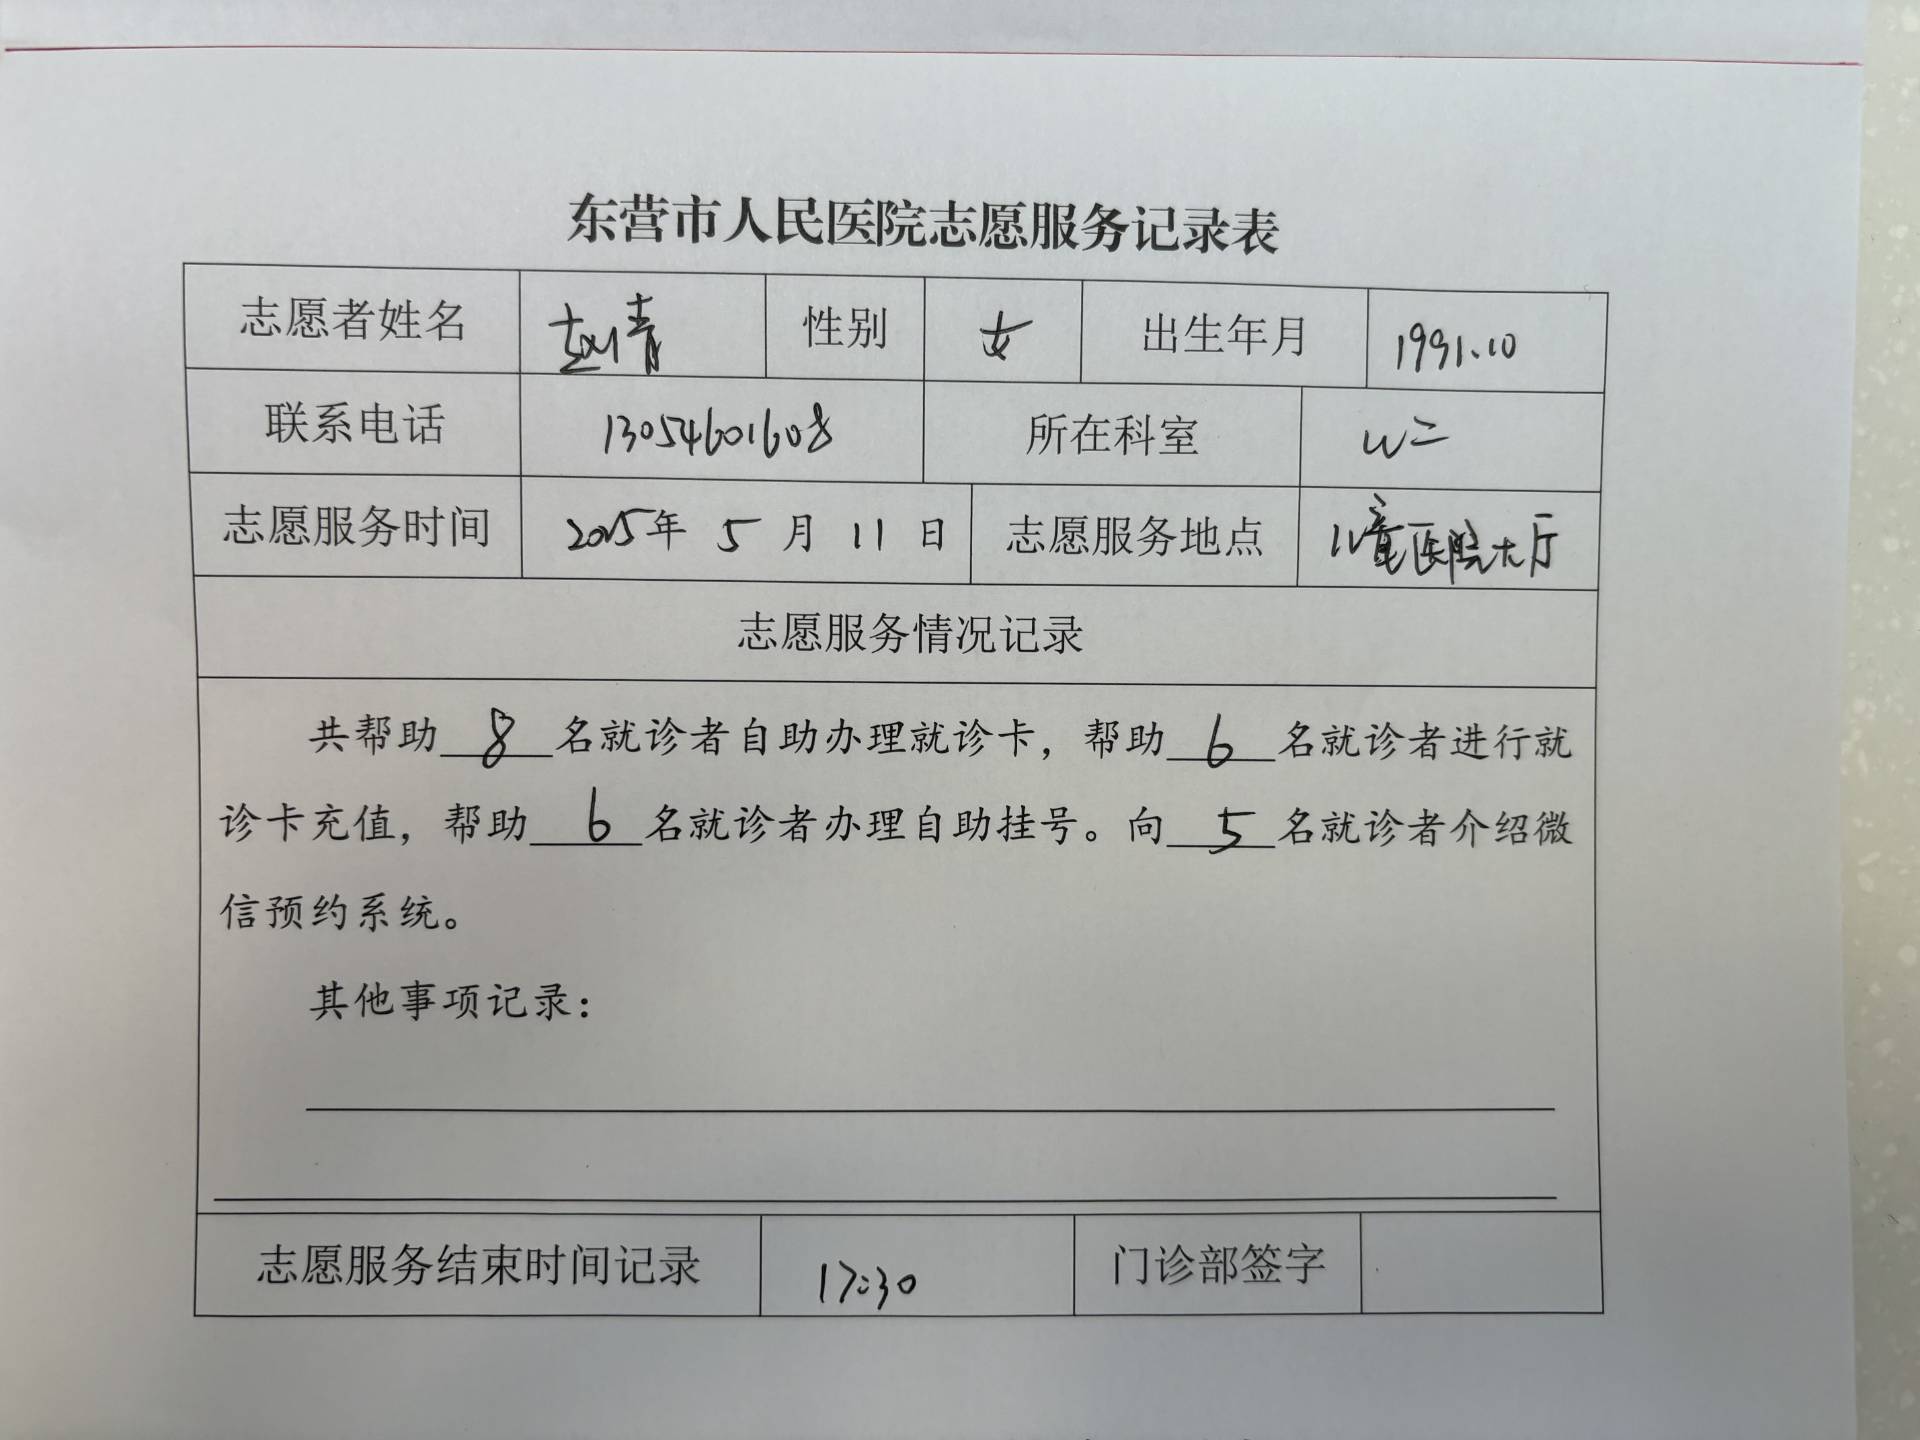 东营市人民医院志愿服务记录表
志愿者姓名 赵倩 性别 女 出生年月 1991.10
联系电话 13054601608 所在科室
志愿服务时间 2025年 5 月 11 日 志愿服务地点 儿童医院大厅
志愿服务情况记录
共帮助 8 名就诊者自助办理就诊卡，帮助 6 名就诊者进行就
诊卡充值，帮助 6 名就诊者办理自助挂号。向 5 名就诊者介绍微
信预约系统。
其他事项记录：
志愿服务结束时间记录 17:30 门诊部签字